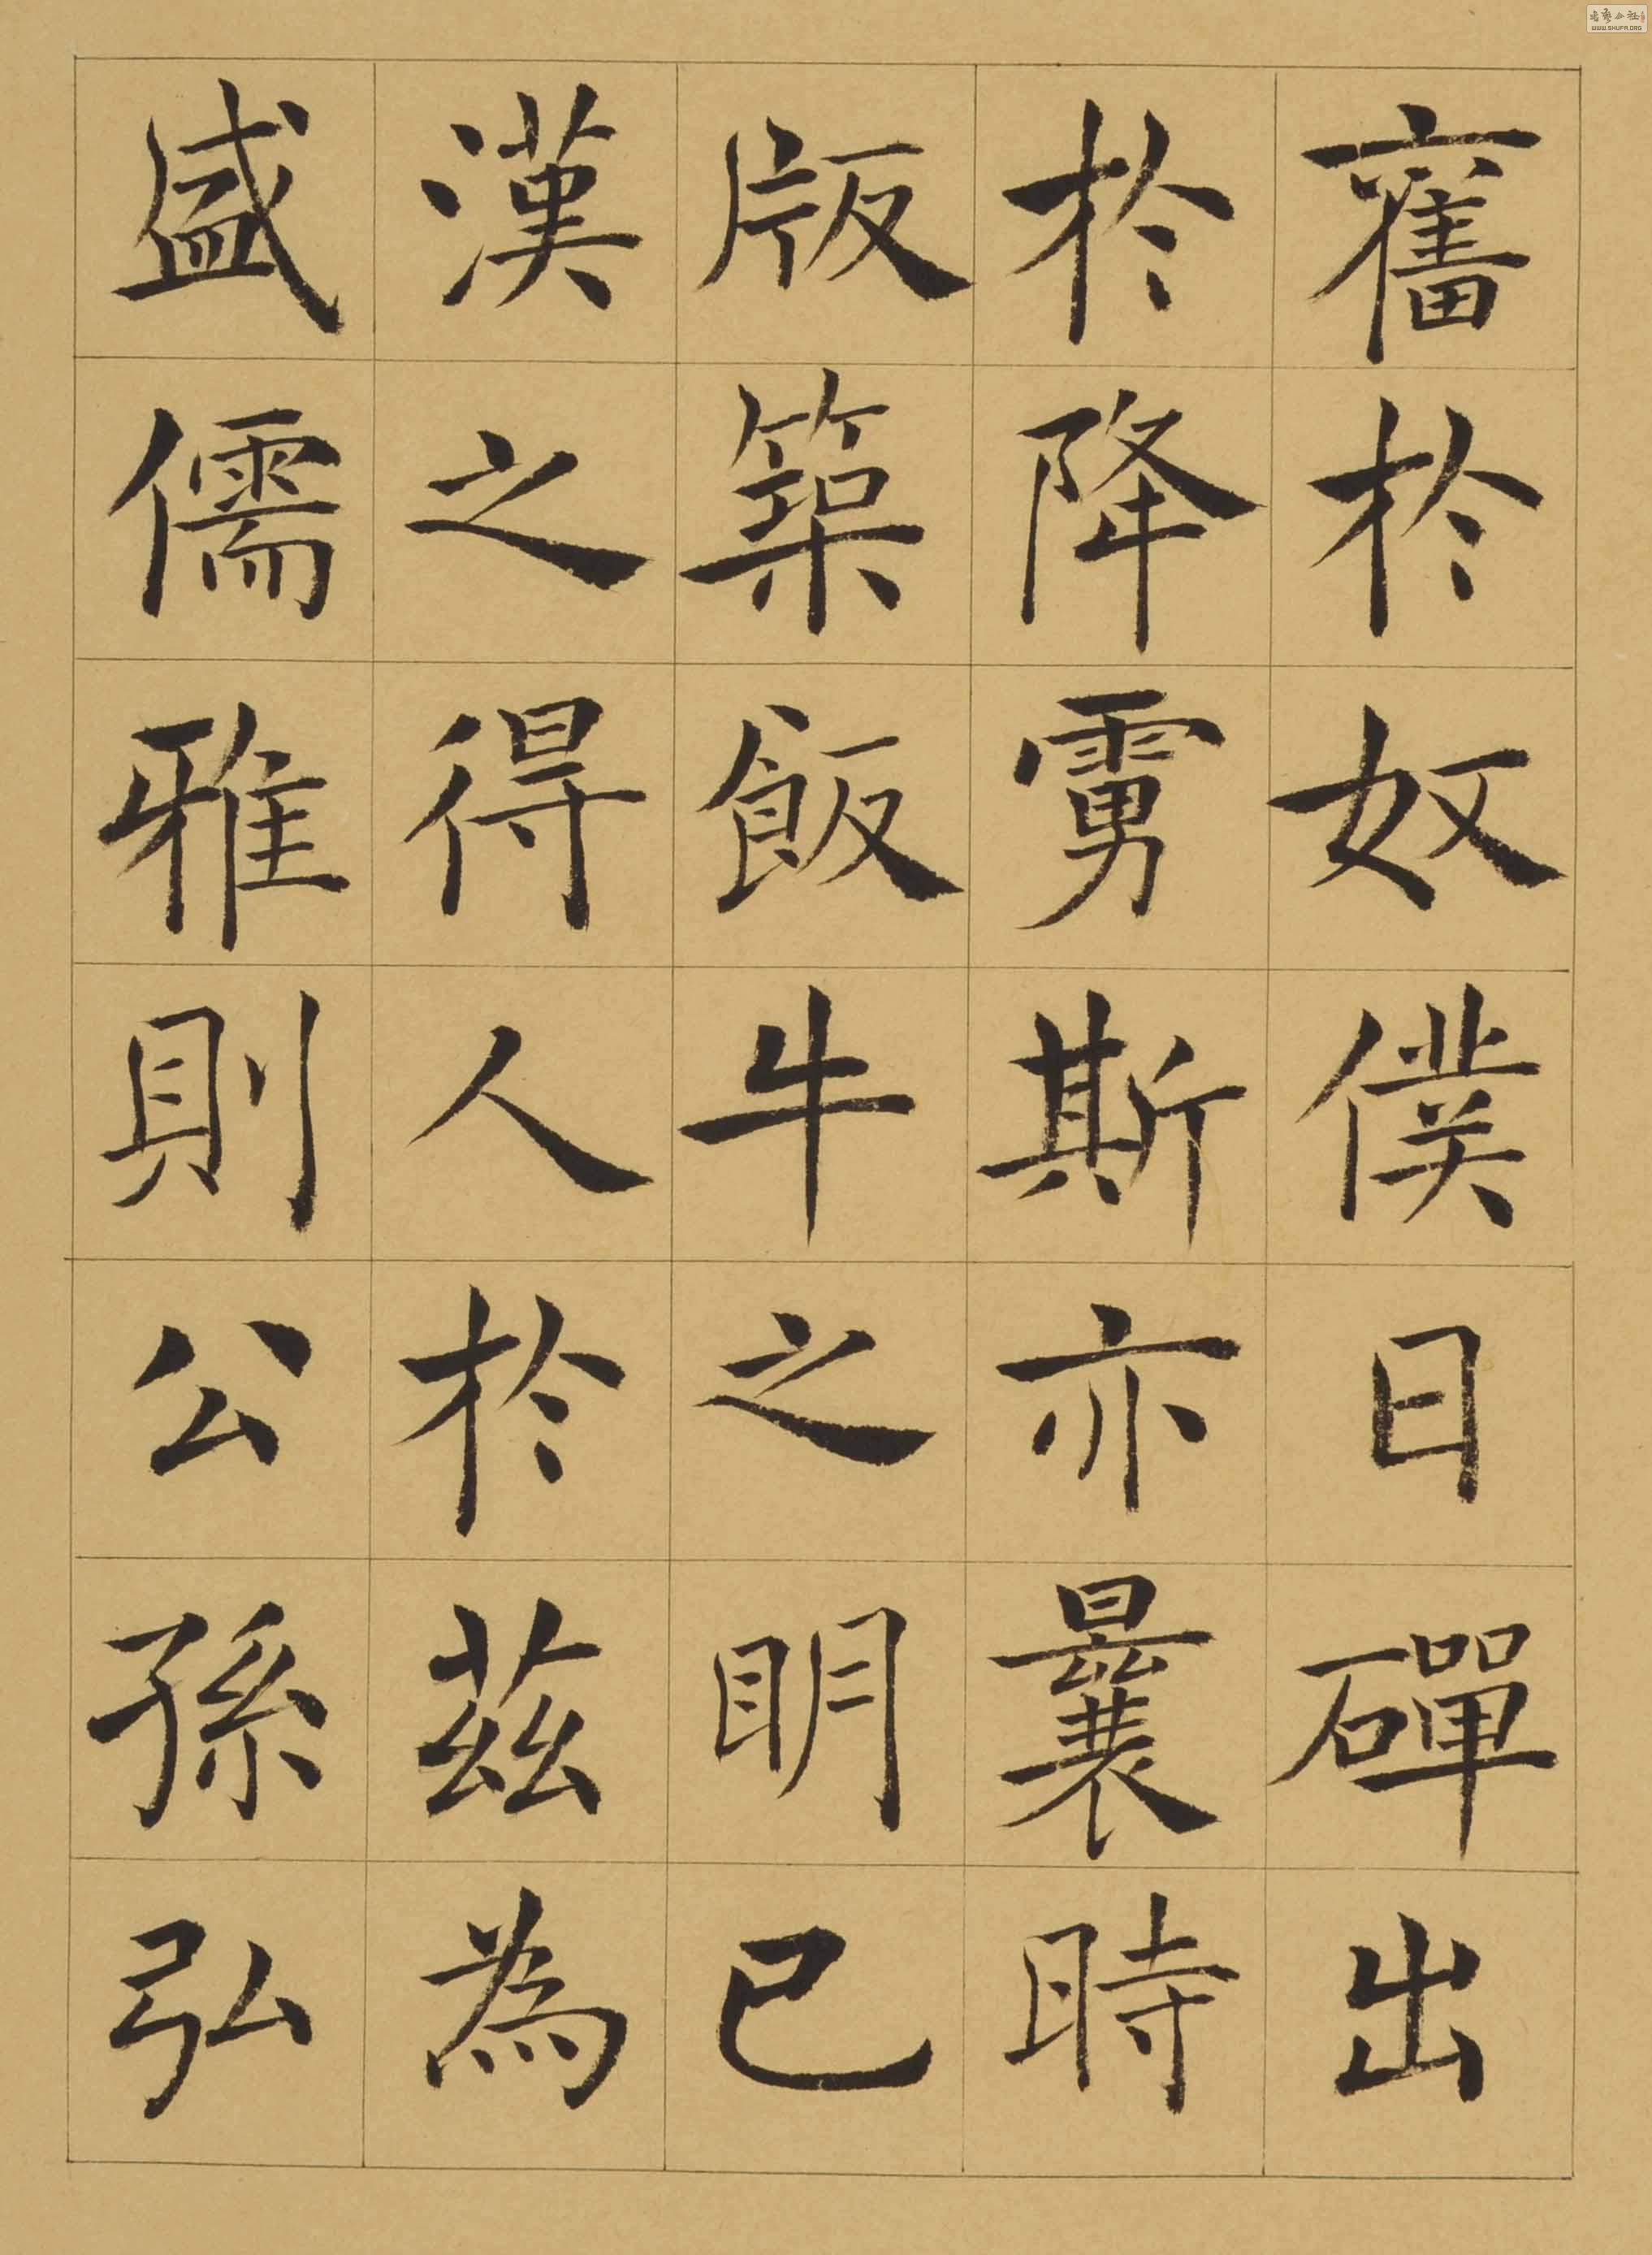 奮於奴僕日磾出
於降虜斯亦曩時
版築飯牛之眀已
漢之得人於茲為
盛儒雅則公孫弘
WWW.SHUFA.ORG